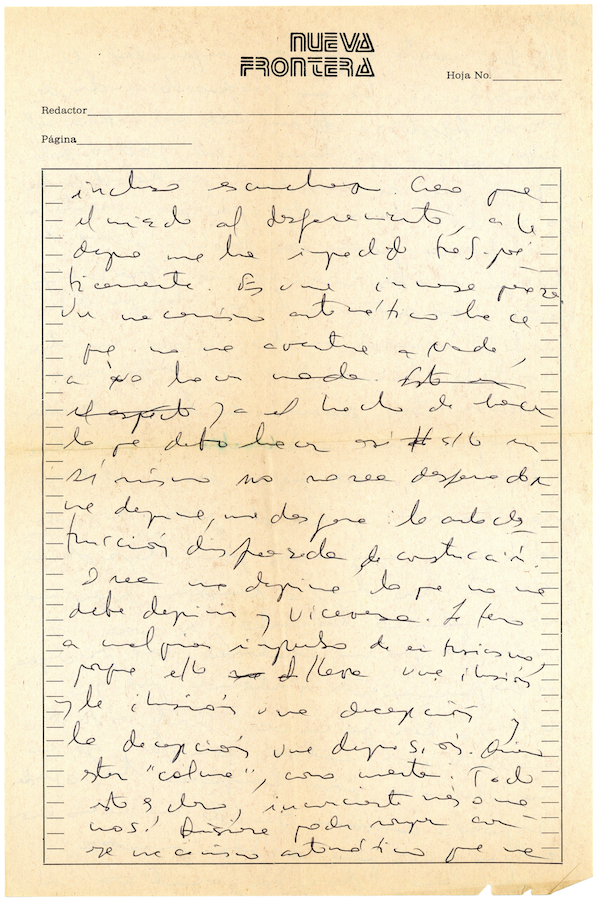 NUEVA
FRONTERA
Hoja No.
Redactor
Página
incluso escuchar. Creo que
el miedo al desgarramiento, a la
me ha impedido poé-
ticamente. Es una inmensa pereza
Un mecanismo automático hace
que no me aventure a nada,
a no hacer nada. Esto
el aspecto y a el hecho de hacer
lo que debo hacer así esto en
sí mismo no sea desgarrador
me deprime, me desgarra: la autodes-
trucción disfrazada de construcción.
O sea me deprime lo que no me
debe deprimir y viceversa. Le temo
a cualquier impulso de entusiasmo,
porque ello lleva una ilusión
y la ilusión una decepción y
la decepción una depresión. Quiero
estar "calma", como muerta. Todo
esto es claro, inconsciente más o me-
nos! Quisiera poder romper con
ese mecanismo automático que me